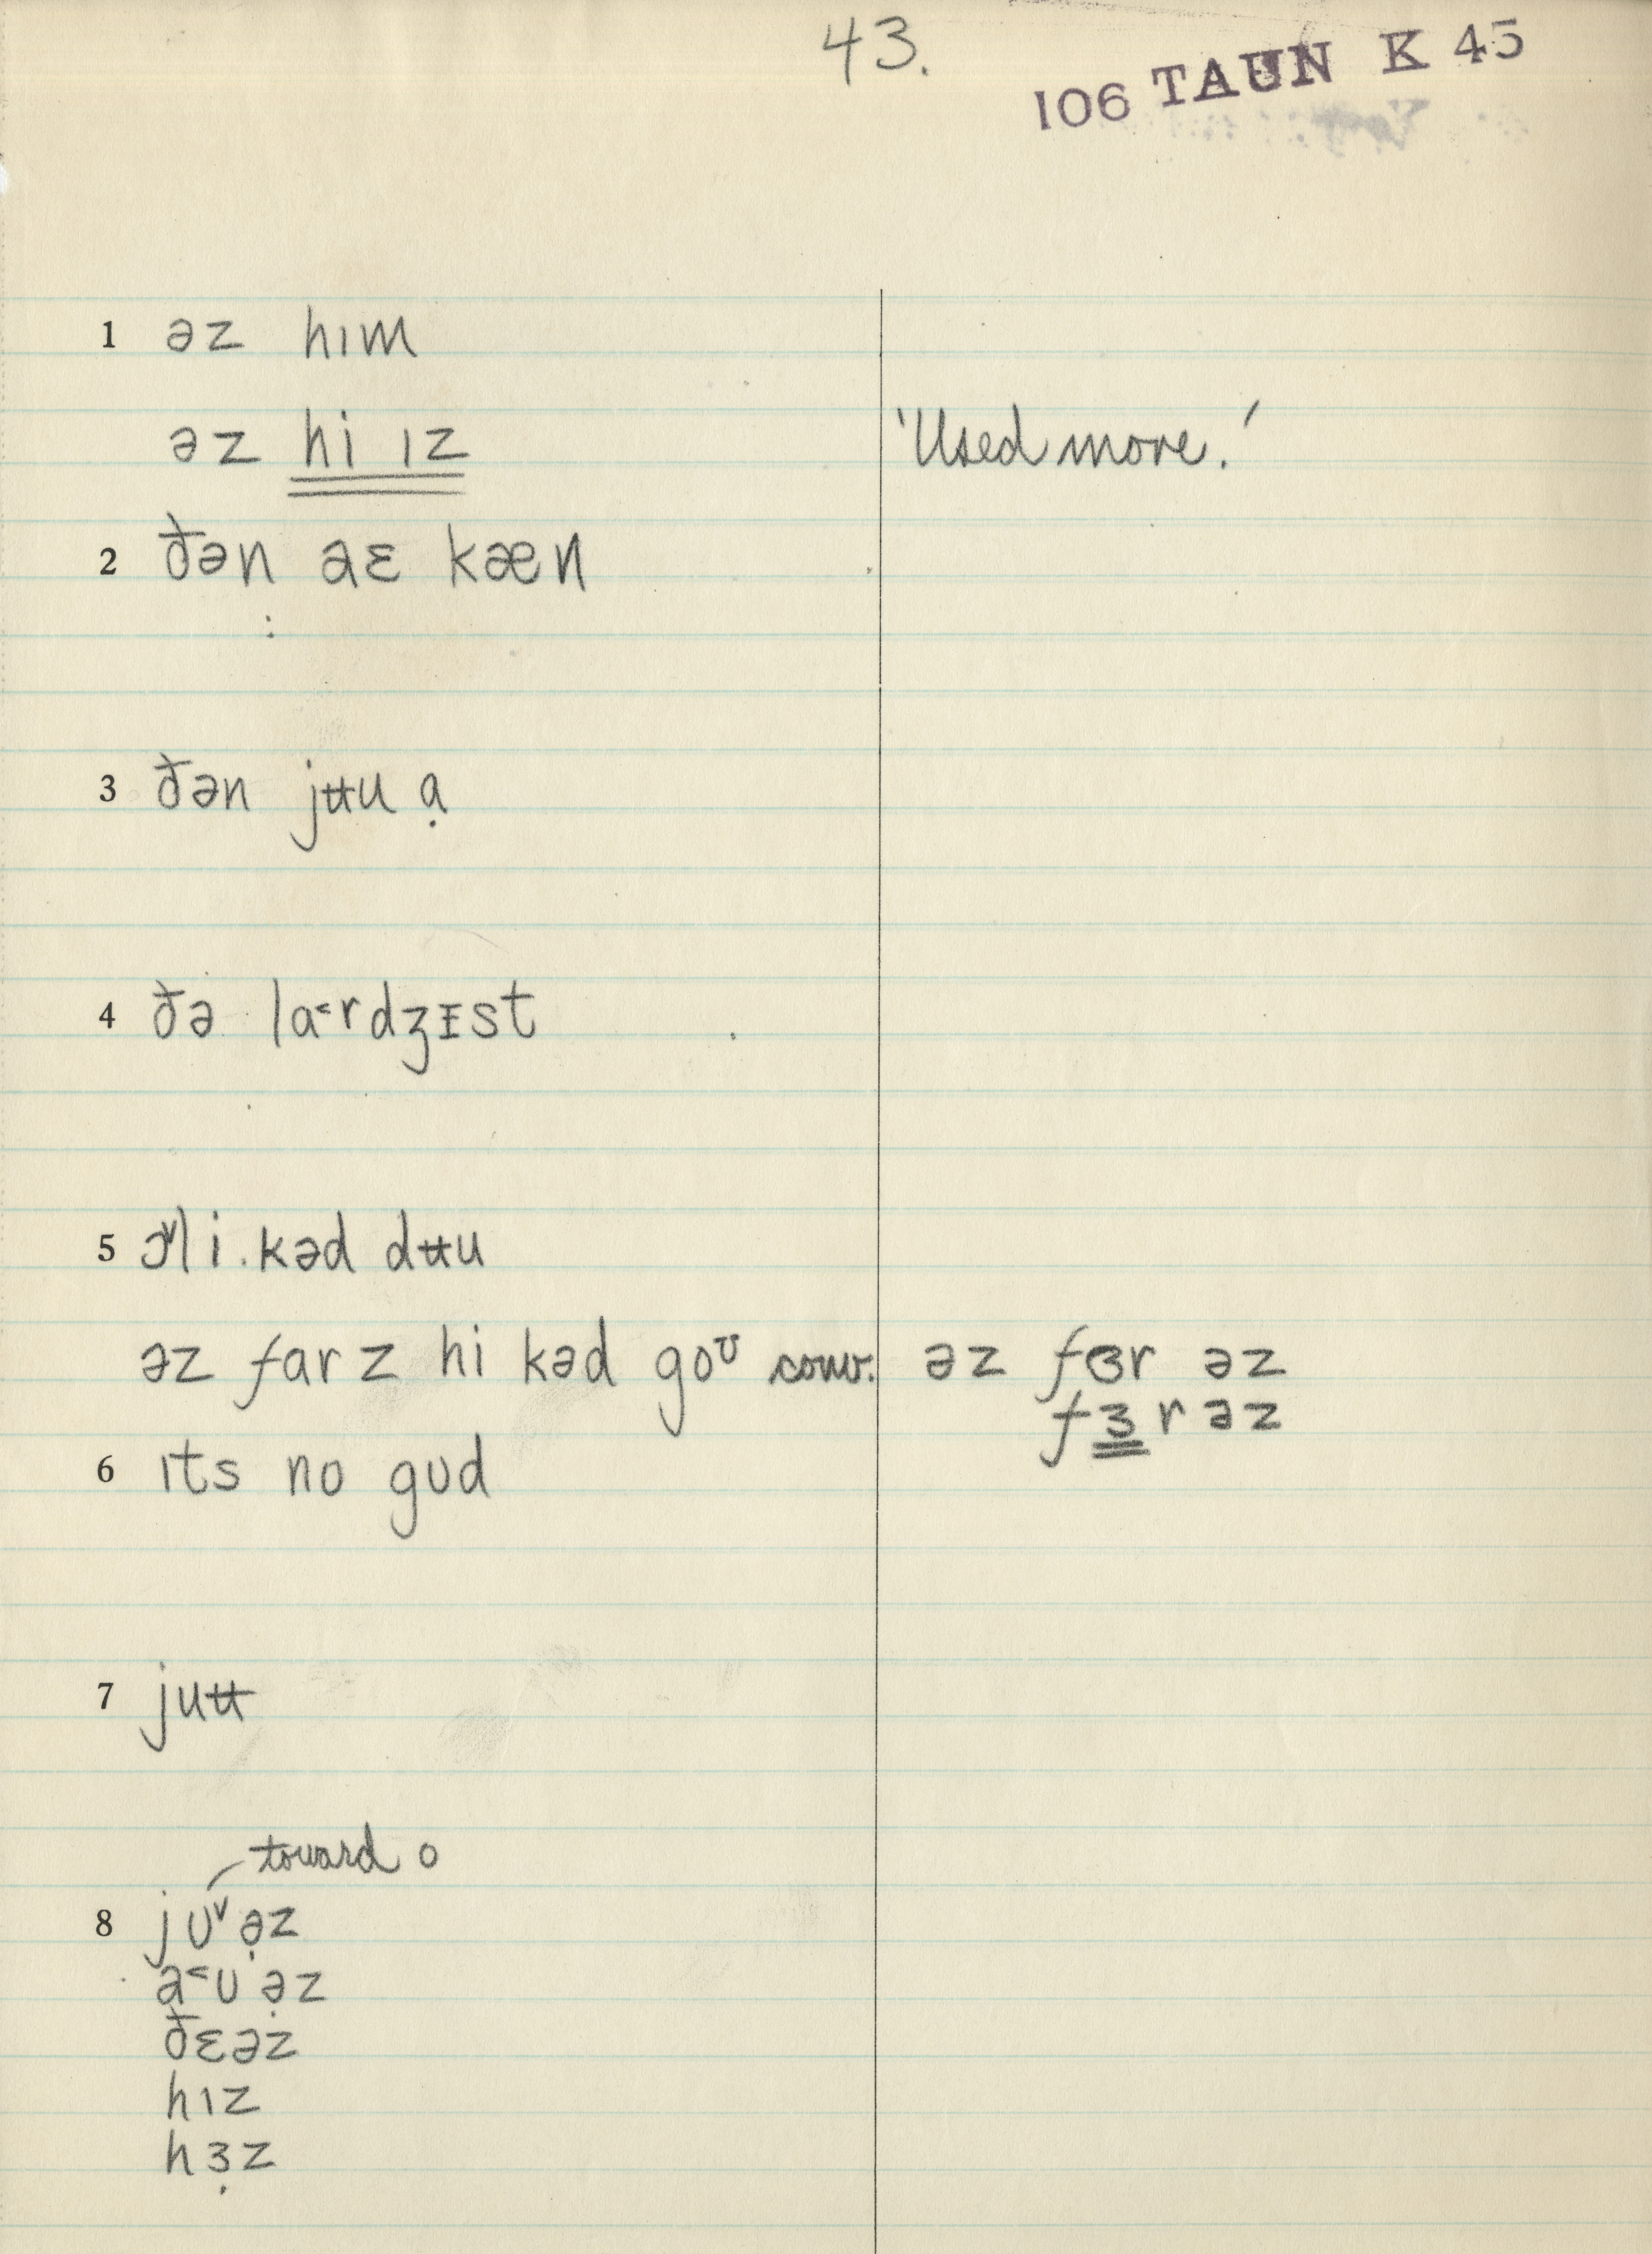 43.
106 TAUN K 45
1 əz hɪm
əz hi ɪz 'Used more.'
2 ðən aɛ kæn
3 ðən jʉu ạ
4 ðə la˂rdʒɪst
5 ɔ˅l i kəd dʉu
əz far z hi kəd goᶷ conv. əz fɞr əz
fɜr əz
6 ɪts no gʊd
7 juʉ
toward o
8 jʊ˅ə̣z
a˂ʊə̣z
ðɛəz
hɪz
hɜ̣z